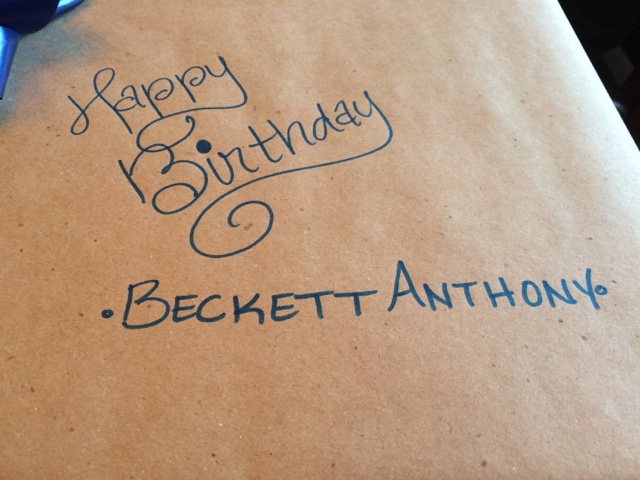 Happy
Birthday
•BECKETT ANTHONY•